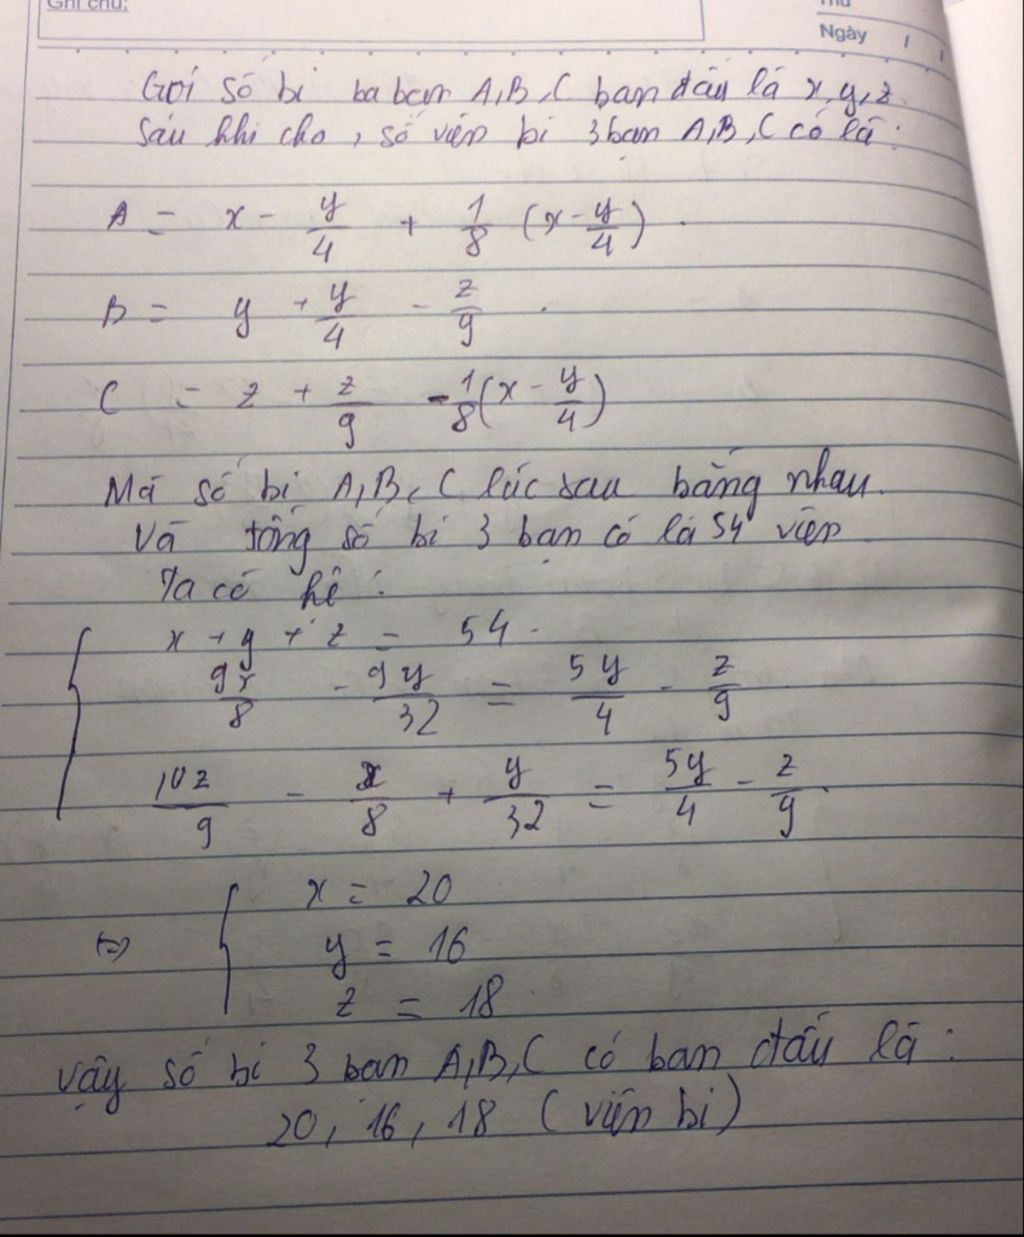 Ghi chú:
Thứ
Ngày / /
Gọi số bi ba bạn A, B, C ban đầu là x, y, z
Sau khi cho, số viên bi 3 bạn A, B, C có là:
A = x - y/4 + 1/8 (x - y/4).
B = y + y/4 - z/9.
C = z + z/9 - 1/8 (x - y/4)
Mà số bi A, B, C lúc sau bằng nhau.
Và tổng số bi 3 bạn có là 54 viên
Ta có hệ:
x + y + z = 54.
9x/8 - 9y/32 = 5y/4 - z/9
10z/9 - x/8 + y/32 = 5y/4 - z/9.
(=) x = 20
y = 16
z = 18.
Vậy số bi 3 bạn A, B, C có ban đầu là:
20, 16, 18 (viên bi)